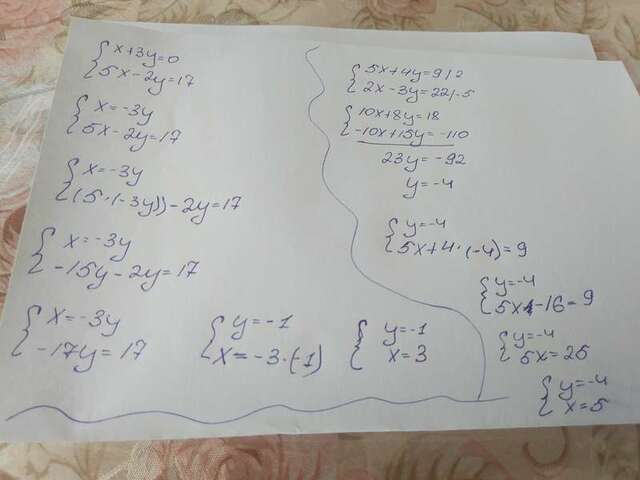 {x+3y=0
{5x-2y=17
{x=-3y
{5x-2y=17
{x=-3y
{(5·(-3y))-2y=17
{x=-3y
{-15y-2y=17
{x=-3y
{-17y=17
{y=-1
{x=-3·(-1)
{y=-1
{x=3
{5x+4y=9|·2
{2x-3y=22|·-5
{10x+8y=18
{-10x+15y=-110
23y=-92
y=-4
{y=-4
{5x+4·(-4)=9
{y=-4
{5x-16=9
{y=-4
{5x=25
{y=-4
{x=5